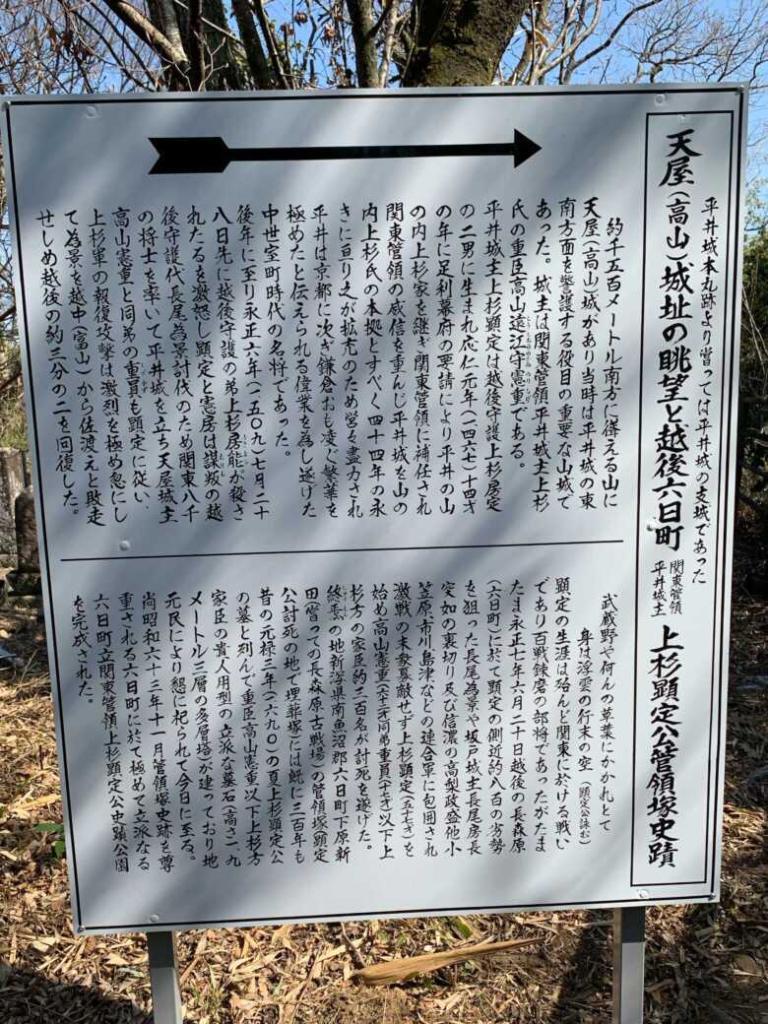 平井城本丸跡より嘗っては平井城の支城であった
天屋(高山)城址の眺望と越後六日町 関東管領 平井城主 上杉顕定公管領塚史蹟
約千五百メートル南方に徯える山に
天屋(高山)城があり当時は平井城の東
南方面を警護する役目の重要な山城で
あった。城主は関東管領平井城主上杉
氏の重臣高山遠江守憲重である。
平井城主上杉顕定は越後守護上杉房定
の二男に生まれ応仁元年(一四六七)十四才
の年に足利幕府の要請により平井の山
の内上杉家を継ぎ関東管領に補任され
関東管領の威信を重んじ平井城を山の
内上杉氏の本拠とすべく四十四年の永
きに亘り之が拡充のため営々盡力され
平井は京都に次ぎ鎌倉おも凌ぐ繁華を
極めたと伝えられる偉業を為し遂げた
中世室町時代の名将であった。
後年に至り永正六年(一五〇九)七月二十
八日先に越後守護の弟上杉房能が殺さ
れたるを激怒し顕定と憲房は謀叛の越
後守護代長尾為景討伐のため関東八千
の将士を率いて平井城を立ち天屋城主
高山憲重と同弟の重員も顕定に従い、
上杉軍の報復攻撃は激烈を極め忽にし
て為景を越中(富山)から佐渡えと敗走
せしめ越後の約三分の二を回復した。
武蔵野や何んの草葉にかかれとて
身は浮雲の行末の空(顕定公詠む)
顕定の生涯は殆んど関東に於ける戦い
であり百戦錬磨の部将であったがたま
たま永正七年六月二十日越後の長森原
(六日町)に於て顕定の側近約八百の劣勢
を狙った長尾為景や坂戸城主長尾房長
突如の裏切り及び信濃の高梨政盛他小
笠原市川島津などの連合軍に包囲され
激戦の末衆寡敵せず上杉顕定(五十七才)を
始め高山憲重(六十二才)同弟重員(五十七才)以下上
杉方の家臣約三百名が討死を遂げた。
終焉の地新潟県南魚沼郡六日町下原新
田(嘗っての長森原古戦場)の管領塚(顕定
公討死の地で埋葬塚)には既に三百年も
昔の元禄三年(一六九〇)の夏上杉顕定公
の墓と刻んで重臣高山憲重以下上杉方
家臣の貴人用型の立派な墓石(高さ一、九
メートル三層の多層塔)が建っており地
元民により懇に祀られて今日に至る。
尚昭和六十三年十一月管領塚史跡を尊
重される六日町に於て極めて立派なる
六日町立関東管領上杉顕定公史蹟公園
を完成された。